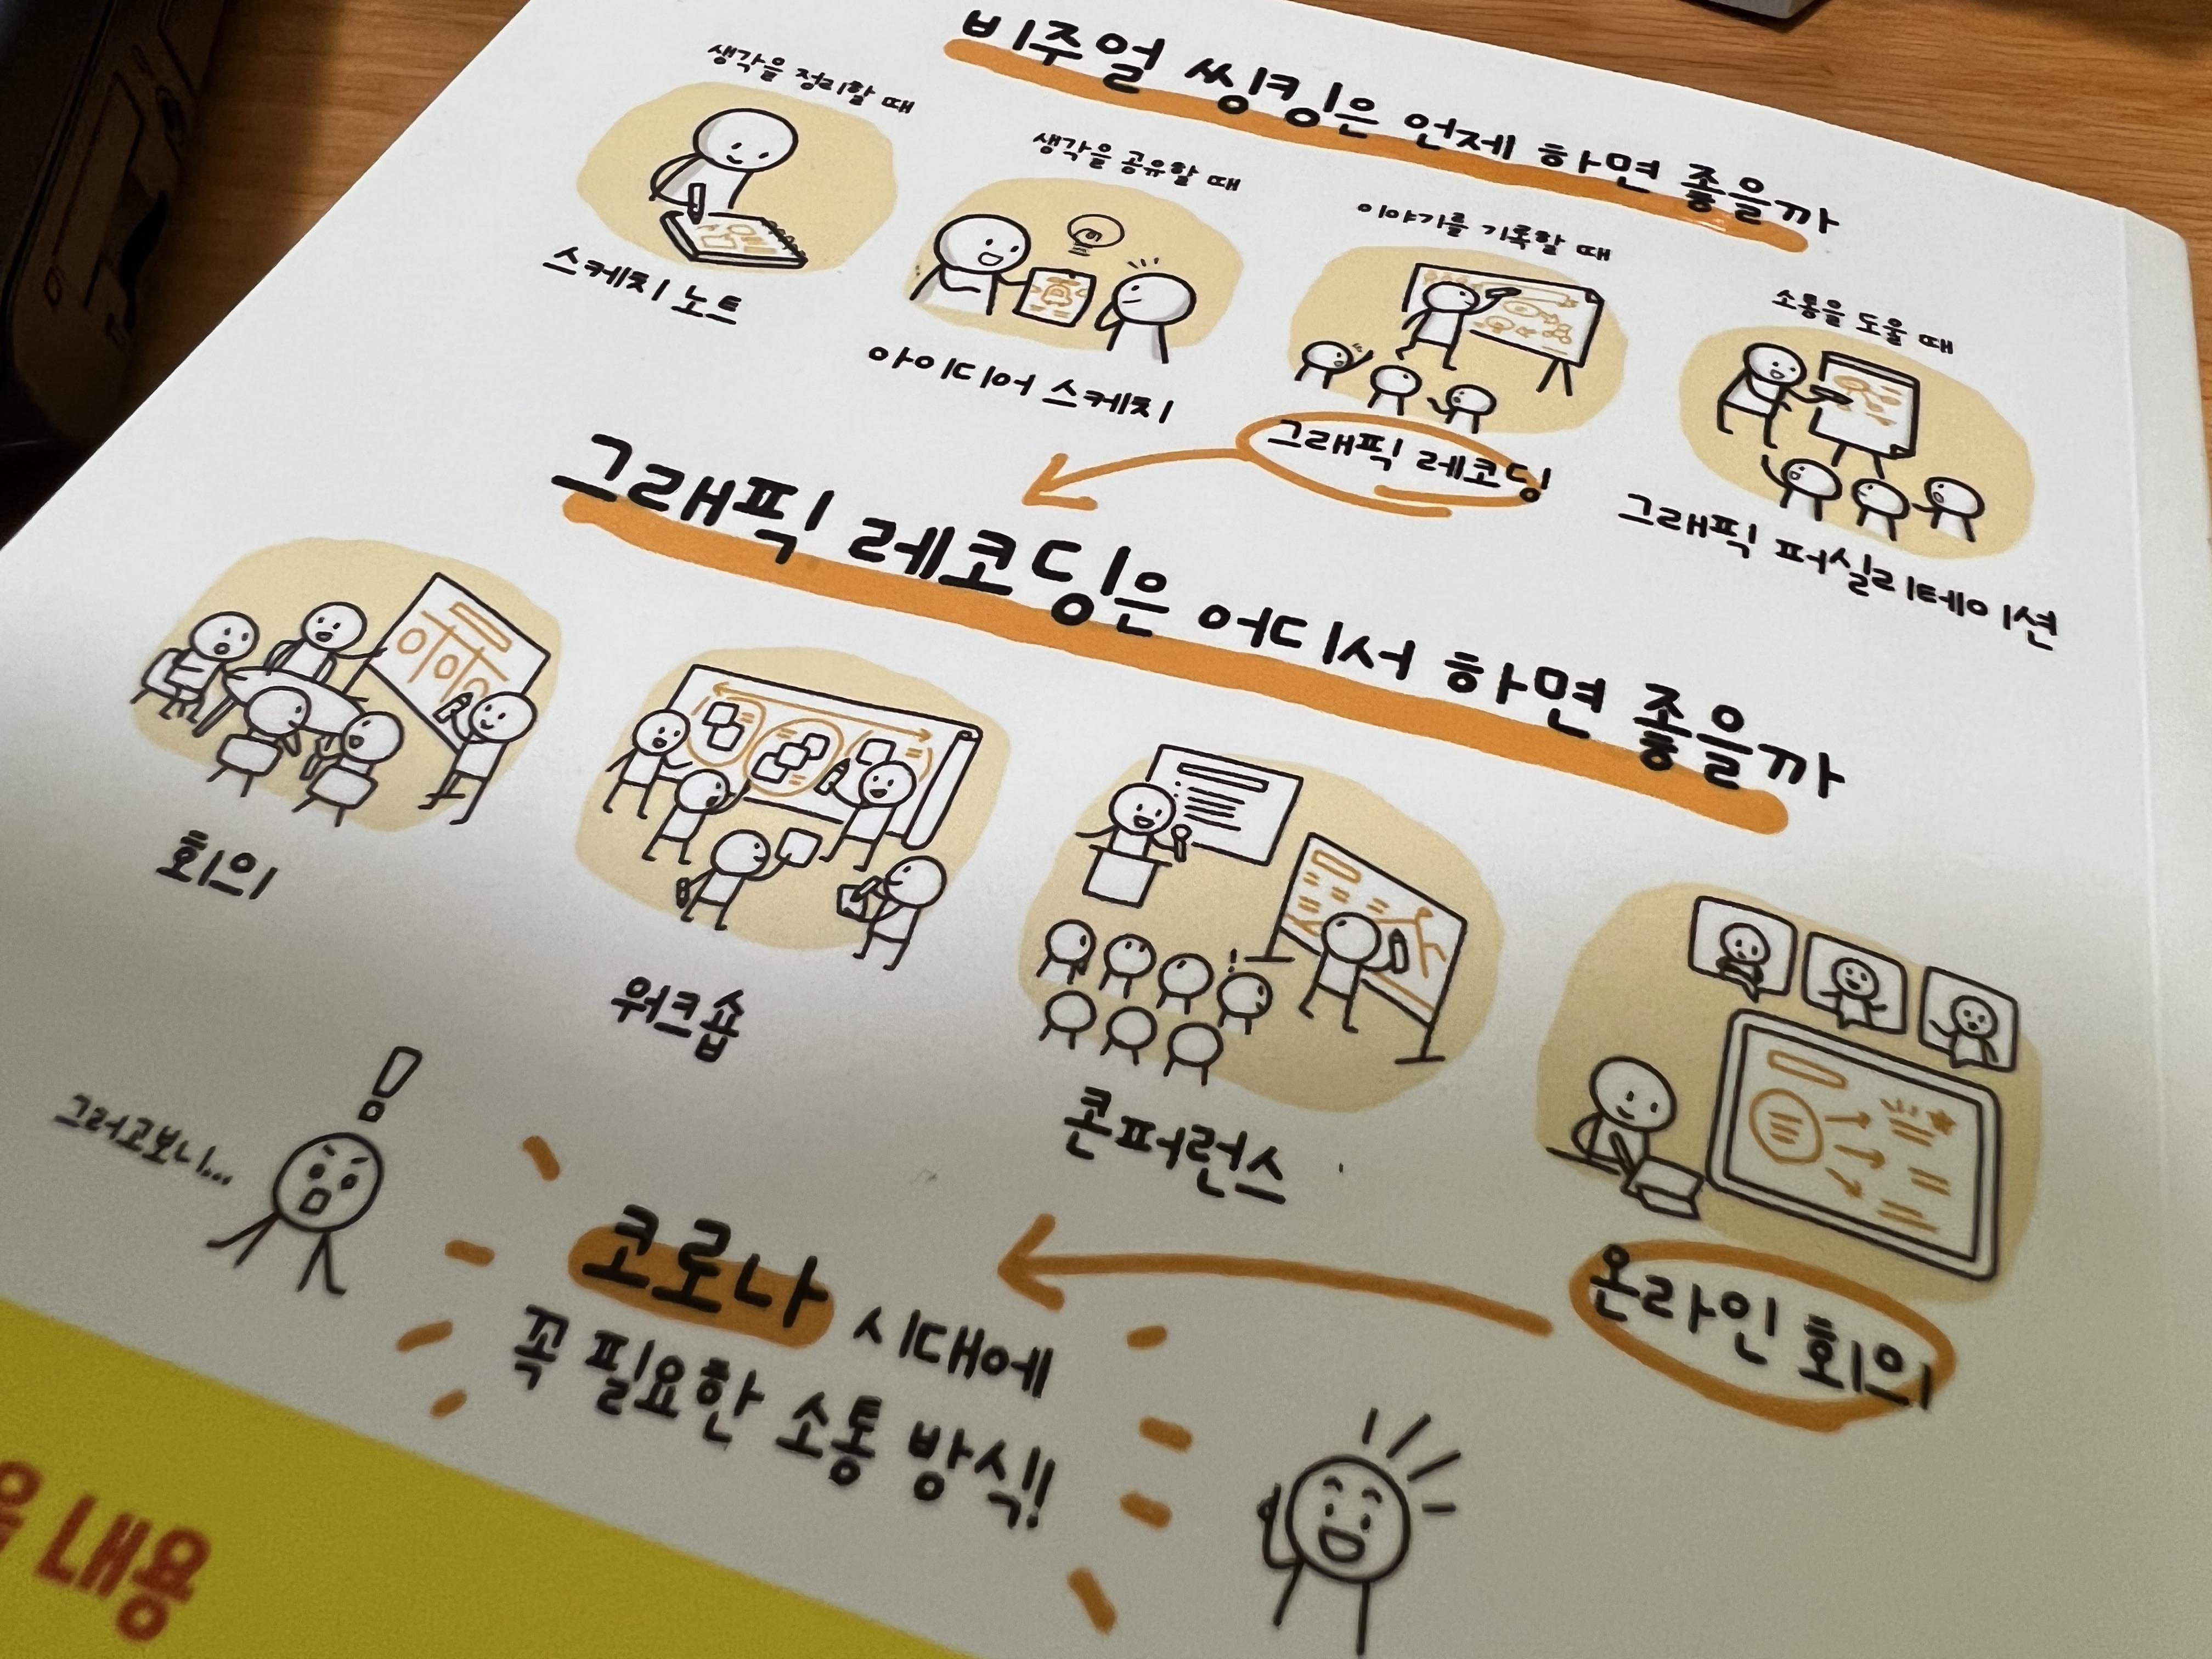 비주얼 씽킹은 언제 하면 좋을까
생각을 정리할 때
스케치 노트
생각을 공유할 때
아이디어 스케치
이야기를 기록할 때
그래픽 레코딩
소통을 도울 때
그래픽 퍼실리테이션
그래픽 레코딩은 어디서 하면 좋을까
회의
워크숍
콘퍼런스
온라인 회의
그러고보니...
!
코로나 시대에
꼭 필요한 소통 방식!!
내용